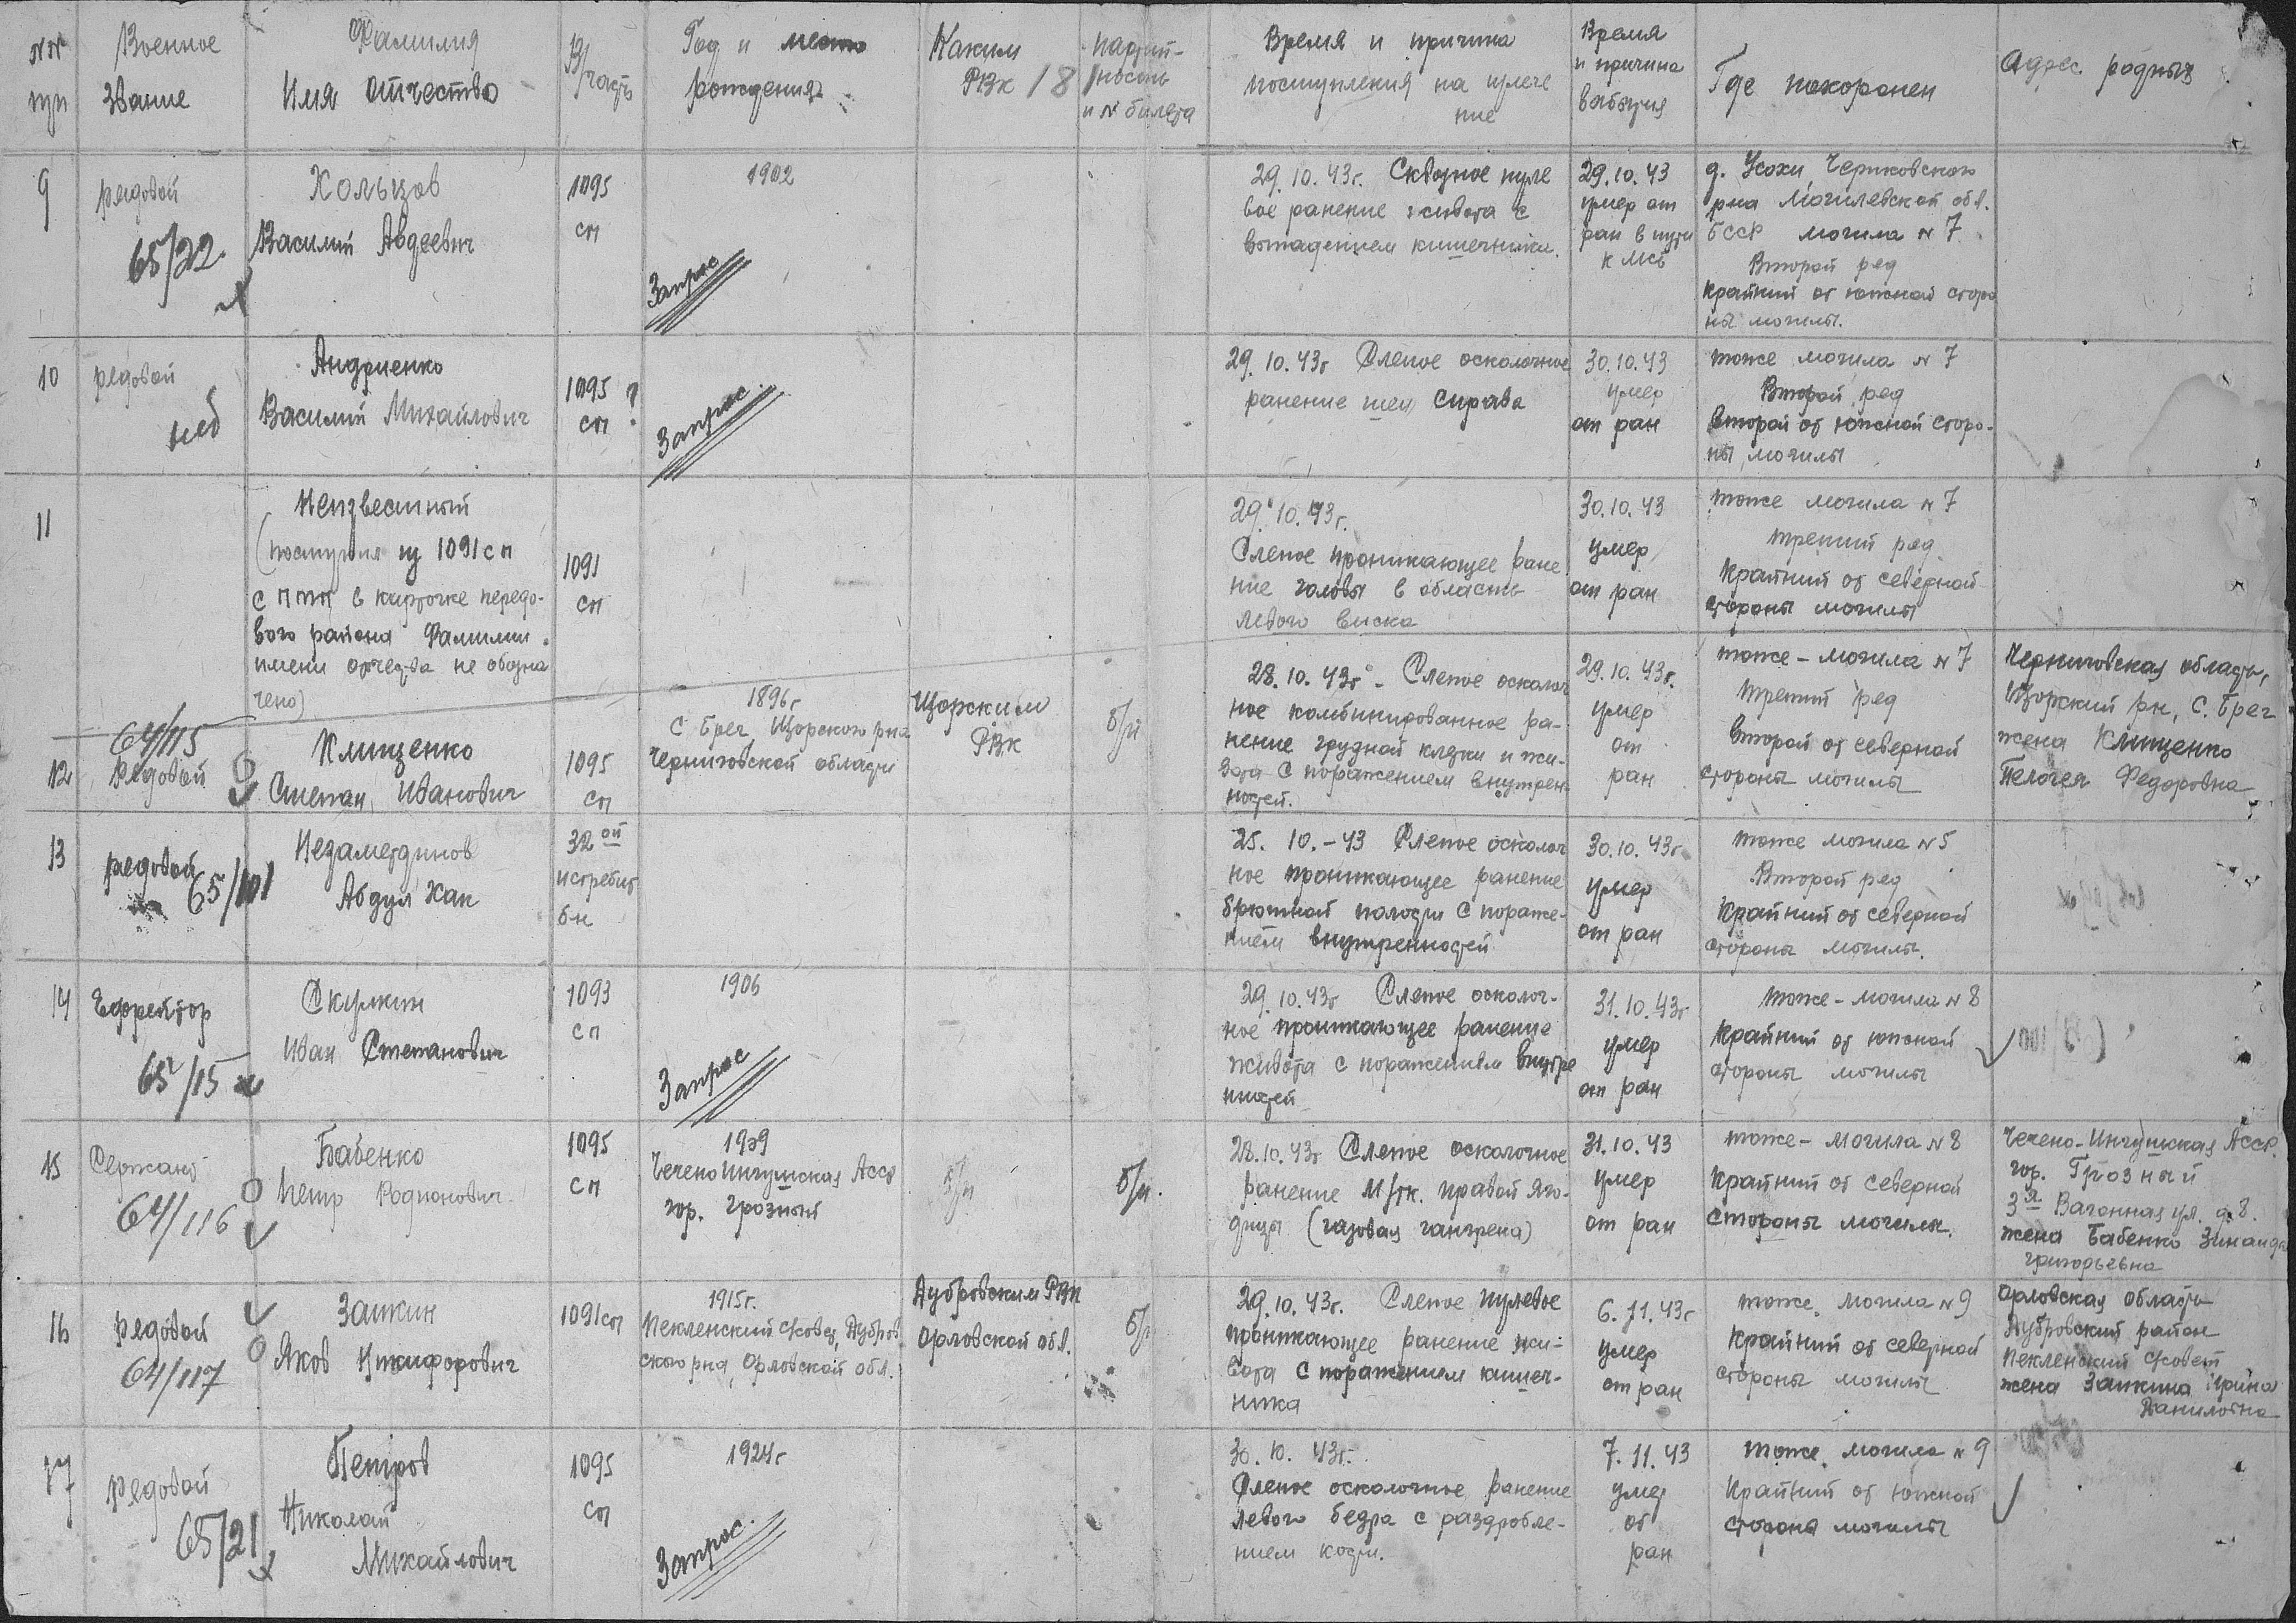 NN пп
Военное Звание
Фамилия Имя Отчество
В/часть
Год и место рождения
Каким РВК
18
партий-
ность
и N билета
Время и причина
поступления на излече
ние
Время
и причина
выбытия
Где похоронен
Адрес родных
9
рядовой
65/22
Хользов
Василий Авдеевич
1095
сп
1902
Запрос
29.10.43г. Сквозное пуле
вое ранение живота с
выпадением кишечника.
29.10.43
умер от
ран в пути
к МСБ
д. Усохи Чериковского
рна Могилевской обл.
БССР могила N 7
Второй ряд
Крайний от южной сторо
ны могилы.
10
рядовой
Андриенко
Василий Михайлович
1095 ?
сп
Запрос
29.10.43г Слепое осколочное
ранение шеи справа
30.10.43
умер
от ран
тоже могила N 7
Второй ряд
второй от южной сторо-
ны могилы
11
Неизвестный
(поступил из 1091 сп
с ППП в карточке передо-
вого района Фамилии
имени отчества не обозна
чено)
1091
сп
29.10.43г.
Слепое проникающее ране
ние головы в область
левого виска
30.10.43
умер
от ран
тоже могила N 7
третий ряд
Крайний от северной
стороны могилы
64/115
12
Рядовой
Клищенко
Степан Иванович
1095
сп
1896г
с Бреч Щорского рна
Черниговской области
Щорским
РВК
б/п
28.10.43г - Слепое осколоч
ное комбинированное ра-
нение грудной клетки и жи-
вота с поражением внутрен-
ностей.
29.10.43г.
умер
от
ран
тоже - могила N 7
третий ряд
второй от северной
стороны могилы
Черниговская область,
Щорский рн, С. Бреч
жена Клищенко
Пелогея Федоровна
13
рядовой
65/101
Незаметдинов
Абдул Хак
32 ой
истребит
б-н
25.10.-43 Слепое осколоч
ное проникающее ранение
брюшной полости с пораже-
нием внутренностей
30.10.43г
умер
от ран
тоже могила N 5
Второй ряд
Крайний от северной
стороны могилы.
14
Ефрейтор
65/15
Скулкин
Иван Степанович
1093
сп
1906
Запрос
29.10.43г Слепое осколоч-
ное проникающее ранение
живота с поражением внутре
ностей
31.10.43г
умер
от ран
тоже - могила N 8
Крайний от южной
стороны могилы
15
Сержант
64/116
Бабенко
Петр Родионович
1095
сп
1909
Чечено Ингушская Асср
гор. Грозный
б/п
б/п.
28.10.43г Слепое осколочное
ранение м/тк. правой яго-
дицы (газовая гангрена)
31.10.43
умер
от ран
тоже - могила N 8
Крайний от северной
стороны могилы.
Чечено-Ингушская Асср.
гор. Грозный
3я Вагонная ул. д. 8.
жена Бабенко Зинаида
григорьевна
16
рядовой
64/117
Заикин
Яков Никифорович
1091 сп
1915г.
Пекленский с/совет, Дубров
ского рна, Орловской обл.
Дубровским РВК
Орловской обл.
б/п
29.10.43г. Слепое пулевое
проникающее ранение жи-
вота с поражением кишеч-
ника
6.11.43г
умер
от ран
тоже могила N 9
Крайний от северной
стороны могилы
Орловская область
Дубровский район
Пекленский с/совет
жена Заикина Ирина
Даниловна
17
рядовой
65/21
Петров
Николай
Михайлович
1095
сп
1924г
Запрос.
30.10.43г.
Слепое осколочное ранение
левого бедра с раздробле-
нием кости.
7.11.43
умер
от
ран
тоже могила N 9
Крайний от южной
стороны могилы